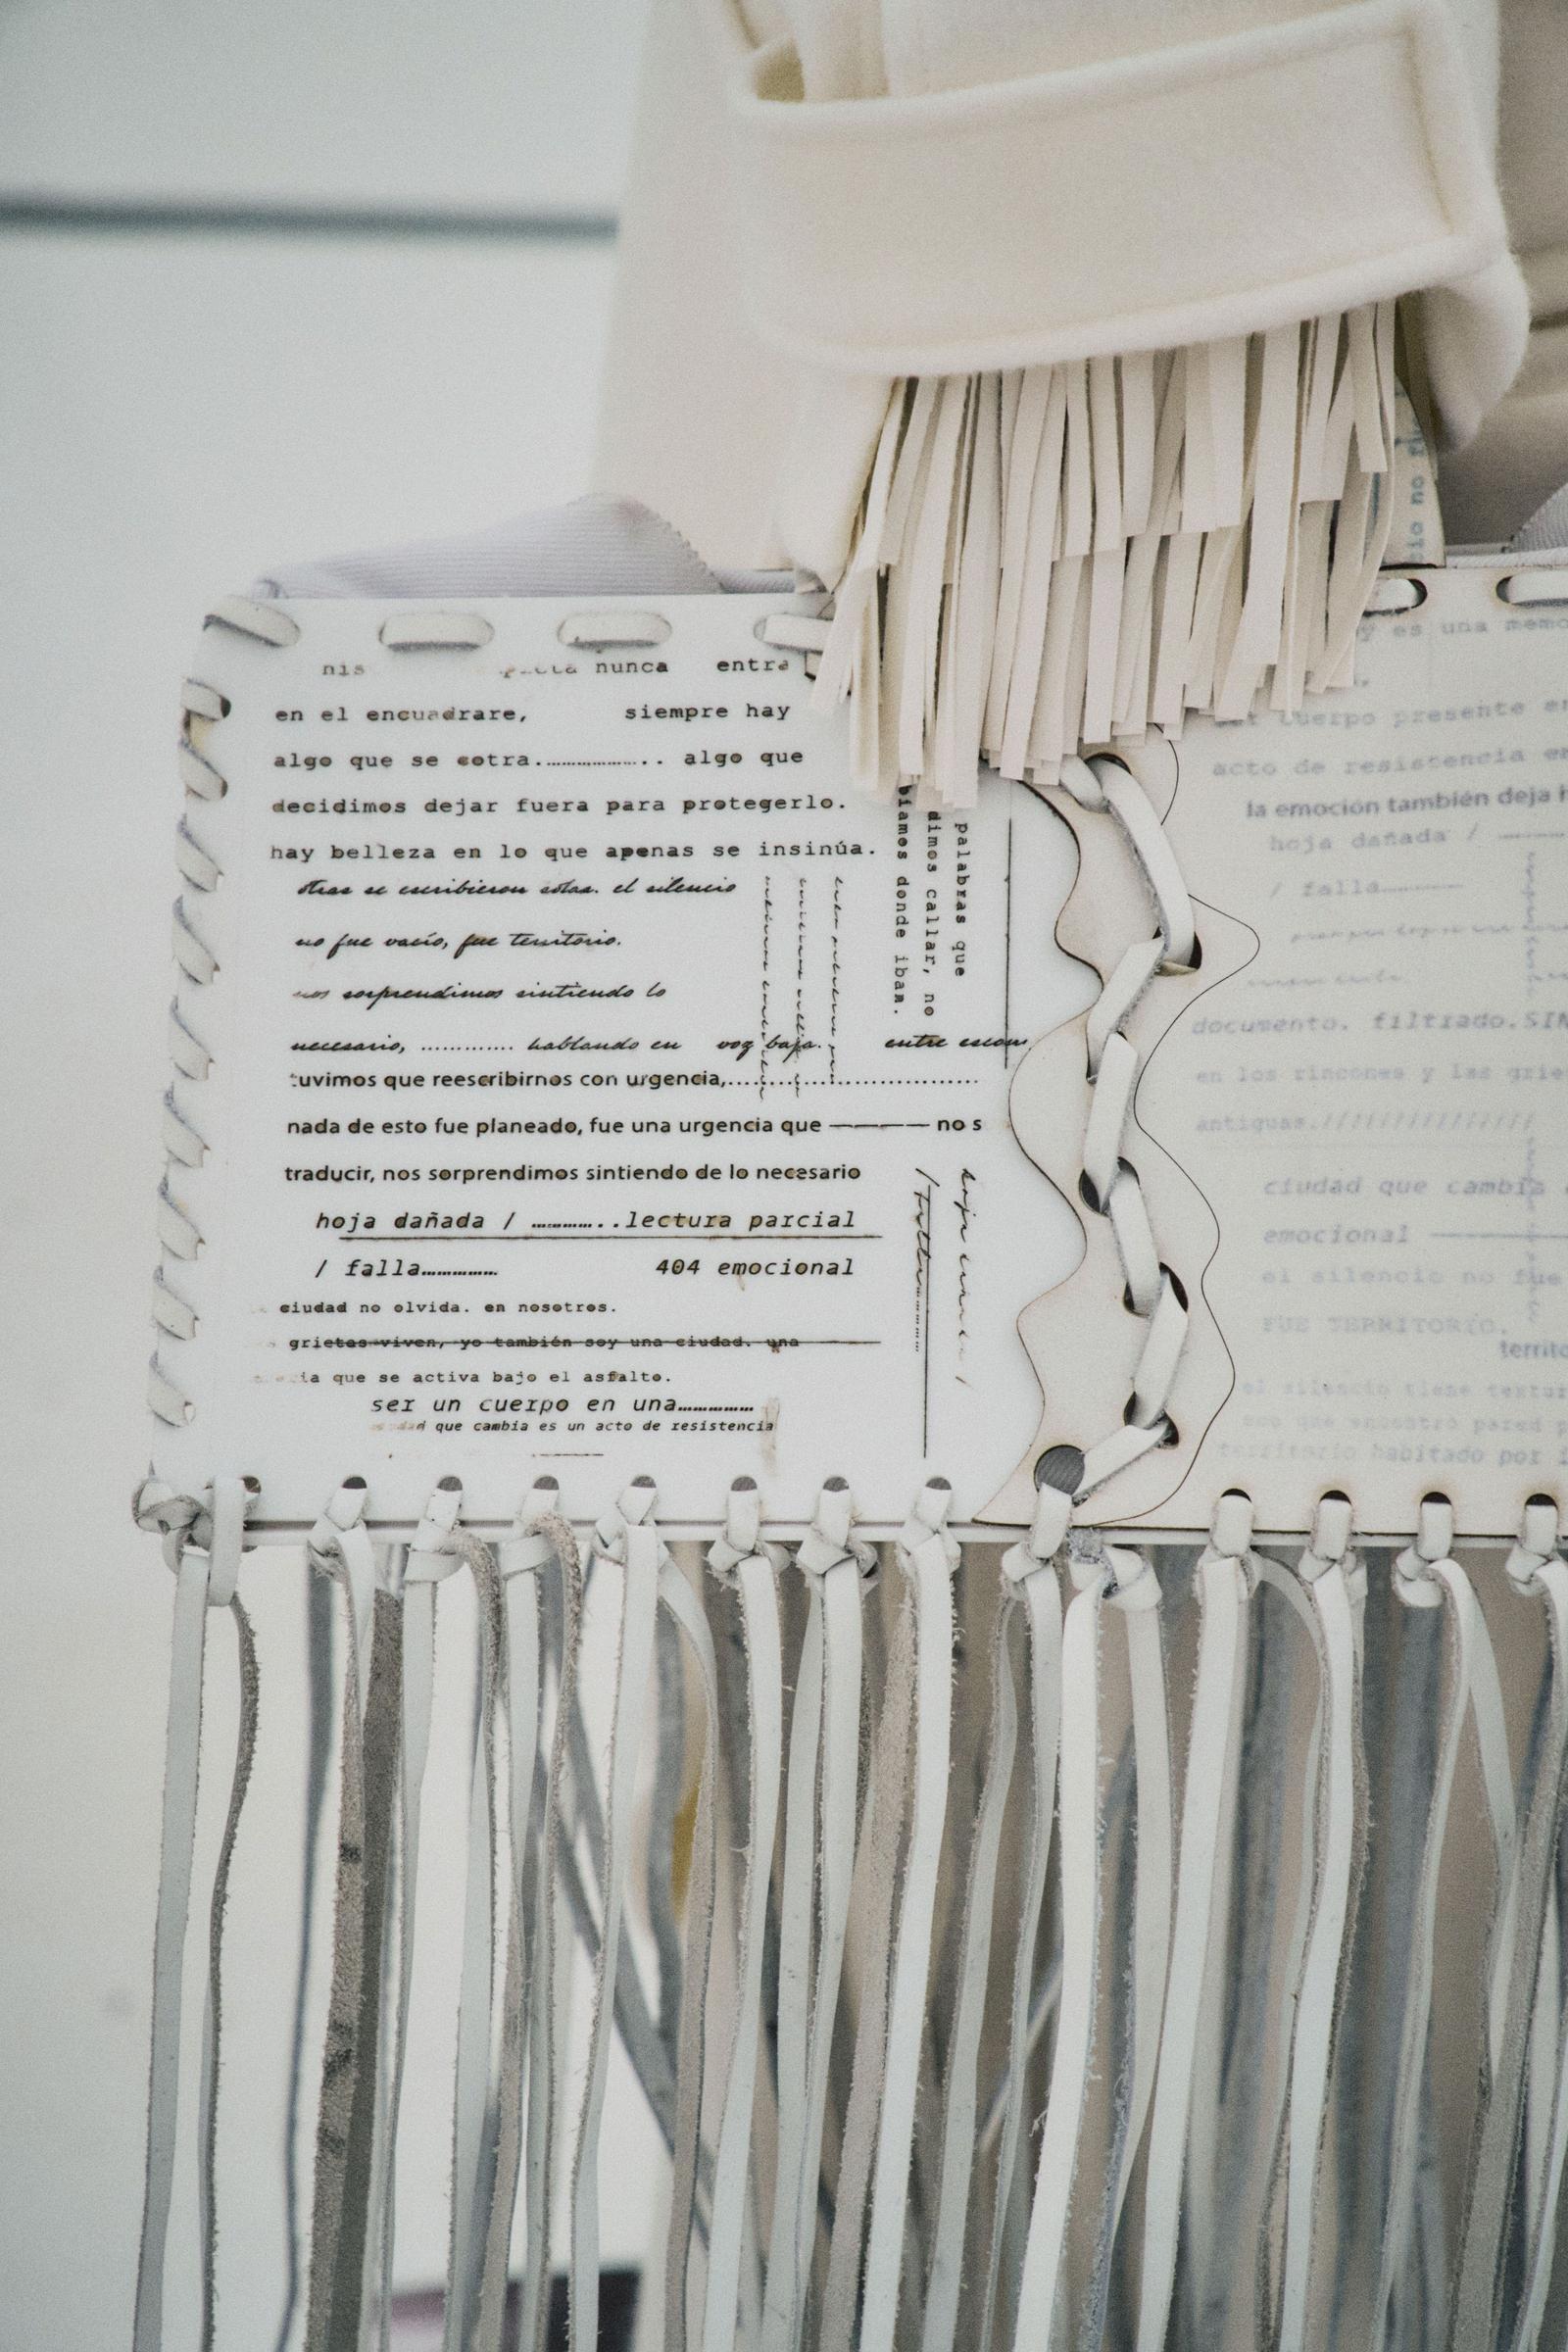 nunca entra
en el encuadrare, siempre hay
algo que se cotra................... algo que
decidimos dejar fuera para protegerlo.
hay belleza en lo que apenas se insinúa.
otras se escribieron solas. el silencio
no fue vacío, fue territorio.
nos sorprendimos sintiendo lo
necesario, ............. hablando en voz baja. entre escom
palabras que
dimos callar, no
biamos donde iban.
tuvimos que reescribirnos con urgencia,....................................
nada de esto fue planeado, fue una urgencia que ———— no s
traducir, nos sorprendimos sintiendo de lo necesario
hoja dañada / ..............lectura parcial
/ falla............... 404 emocional
ciudad no olvida. en nosotros.
grietas viven, yo también soy una ciudad. una
ia que se activa bajo el asfalto.
ser un cuerpo en una...............
que cambia es un acto de resistencia
io no fu
y es una memo
cuerpo presente en
acto de resistencia en
la emoción también deja h
hoja dañada /
/ falla
documento. filtrado.SIN
en los rincones y las grie
antiguas.////////////////
ciudad que cambia
emocional
el silencio no fue
FUE TERRITORIO.
territo
el silencio tiene textur
eco que encontró pared p
territorio habitado por